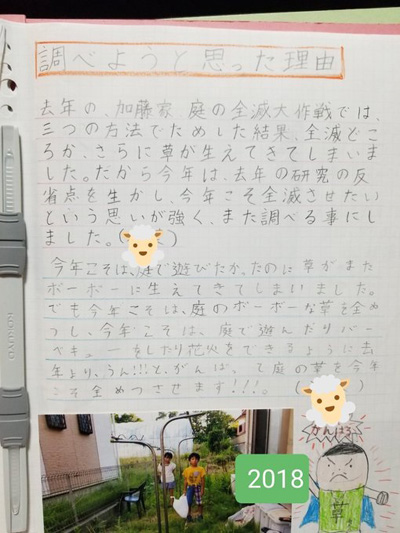 調べようと思った理由
去年の、加藤家 庭の全滅大作戦では、
三つの方法でためした結果、全滅どこ
ろか、さらに草が生えてきてしまいま
した。だから今年は、去年の研究の反
省点を生かし、今年こそ全滅させたい
という思いが強く、また調べる事にし
ました。(
今年こそは、庭で遊びたかったのに草がまた
ボーボーに生えてきてしまいました。
でも今年こそは、庭のボーボーな草を全め
つし、今年こそは、庭で遊んだりバー
ベキューをしたり花火をできるように去
年より、うん!!!と、がんばって庭の草を今年
こそ全めつさせます!!!。(
がんばる
草
2018
KOKUYO